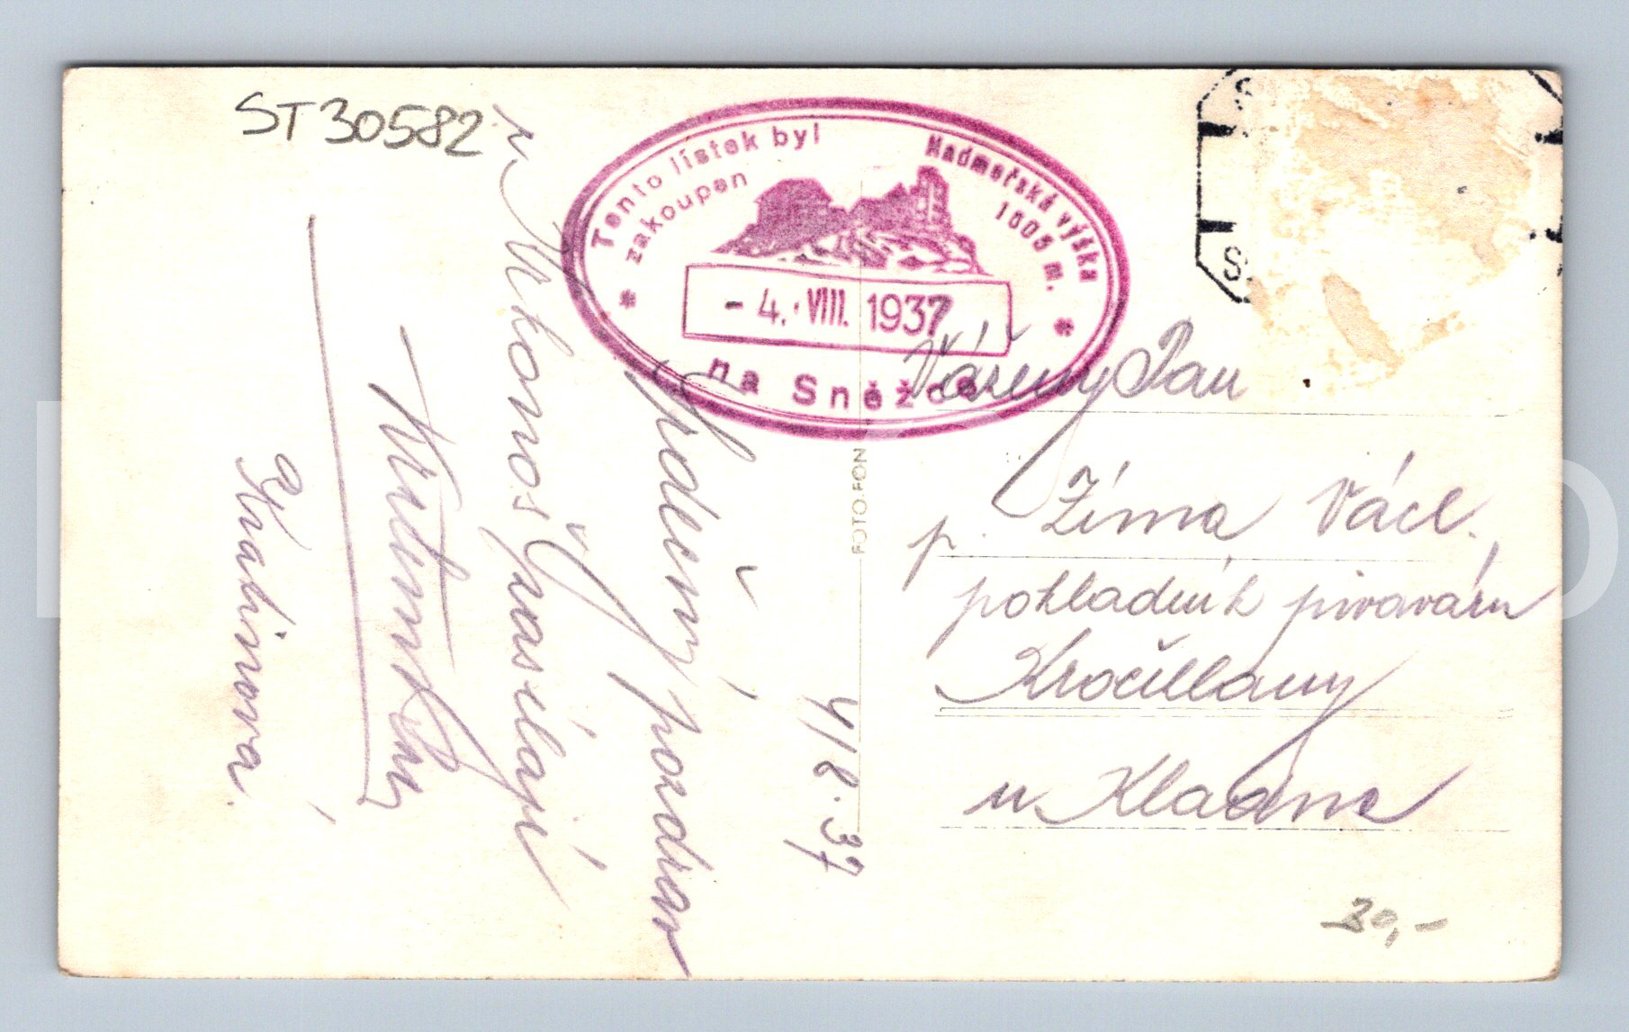 ST30582
Tento lístek byl
zakoupen
Nadmořská výška
1605 m.
- 4. VIII. 1937
na Sněžce
4/8. 37
Srdečný pozdrav
z Krkonoš zasílají
Vážený Pan
p. Zíma Václ.
pokladník pivovaru
Kročehlavy
u Kladna
FOTO FON
30,-